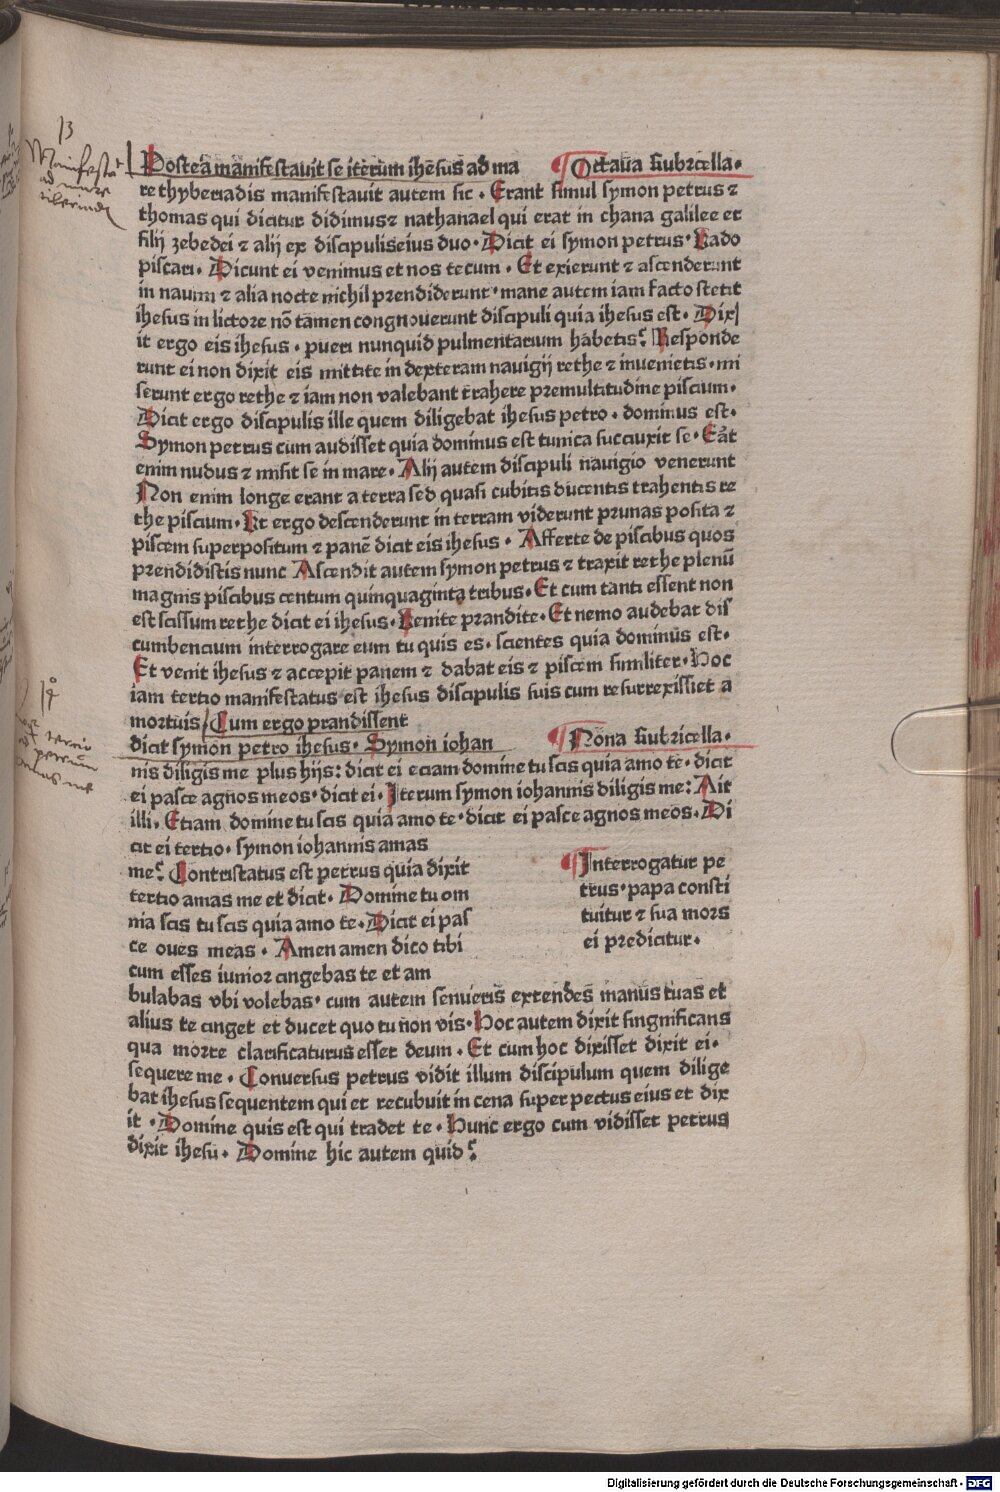 13
Postea manifestavit se iterum ihesus ad ma ¶ Octaua Rubricella.
Manifestat
ad mare
tiberiadis
re thyberiadis manifestavit autem sic . Erant simul symon petrus ⁊
thomas qui dicitur didimus⁊ nathanael qui erat in chana galilee et
filij zebedei ⁊ alij ex discipuliseius duo . Dicit ei symon petrus . Vado
piscari . Dicunt ei venimus et nos tecum . Et exierunt ⁊ ascenderunt
in nauim ⁊ alia nocte nichil prendiderunt . mane autem iam facto stetit
ihesus in lictore nō tamen congnouerunt discipuli quia ihesus est . Dix
it ergo eis ihesus . pueri nunquid pulmentarium habetis? Responde
runt ei non dixit eis mittite in dexteram nauigij rethe ⁊ inuenietis . mi
serunt ergo rethe ⁊ iam non valebant trahere premultitudine piscium .
Dicit ergo discipulis ille quem diligebat ihesus petro . dominus est .
Symon petrus cum audisset quia dominus est tunica succiuxit se . Eāt
enim nudus ⁊ misit se in mare . Alij autem discipuli nauigio venerunt
Non enim longe erant a terra sed quasi cubitis ducentis trahentis re
the piscium . Vt ergo descenderunt in terram viderunt prunas posita ⁊
piscem superpositum ⁊ panē dicit eis ihesus . Afferte de piscibus quos
prendidistis nunc Ascendit autem symon petrus ⁊ traxit rethe plenū
magnis piscibus centum quinquaginta tribus . Et cum tanti essent non
est scissum rethe dicit ei ihesus . Venite prandite . Et nemo audebat dis
cumbencium interrogare eum tu quis es . scientes quia dominus est .
Et venit ihesus ⁊ accepit panem ⁊ dabat eis ⁊ piscem similiter . Hoc
iam tertio manifestatus est ihesus discipulis suis cum resurrexissiet a
mortuis Cum ergo prandissent
14
dicit symon petro ihesus . Symon iohan ¶ Nona Rubricella .
nis diligis me plus hijs: dicit ei eciam domine tu scis quia amo te . dicit
ei pasce agnos meos . dicit ei . Iterum symon iohannis diligis me: Ait
illi . Etiam domine tu scis quia amo te . dicit ei pasce agnos meos . Di
cit ei tertio . symon iohannis amas
me? Contristatus est petrus quia dixit
tertio amas me et dicit . Domine tu om
nia scis tu scis quia amo te . Dicit ei pas
ce oues meas . Amen amen dico tibi
cum esses iunior cingebas te et am
¶ Interrogatur pe
trus . papa consti
tuitur ⁊ sua mors
ei predicitur .
bulabas vbi volebas . cum autem senueris extendes manus tuas et
alius te cinget et ducet quo tu non vis . Hoc autem dixit singnificans
qua morte clarificaturus esset deum . Et cum hoc dixisset dixit ei .
sequere me . Conuersus petrus vidit illum discipulum quem dilige
bat ihesus sequentem qui et recubuit in cena super pectus eius et dix
it . Domine quis est qui tradet te . Hunc ergo cum vidisset petrus
dixit ihesu . Domine hic autem quid?
Digitalisierung gefördert durch die Deutsche Forschungsgemeinschaft - DFG